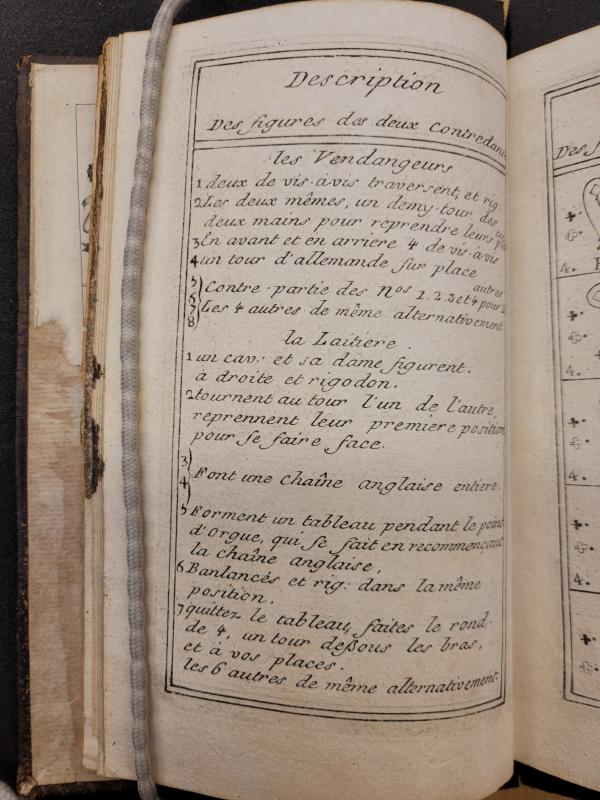 Description
Des figures des deux Contredan
les Vendangeurs
1 deux de vis-à-vis traversent, et rig:
2 Les deux mêmes, un demy-tour, des
deux mains pour reprendre leurs
3 En avant et en arriere 4 de vis-à-vis
4 un tour d'allemande sur place
autres
5 6 7 8 ) Contre-partie des Nos 1. 2. 3 et 4 pour 2
Les 4 autres de même alternativement
la Laitiere.
1 un cav: et sa dame figurent.
à droite et rigodon.
2 tournent au tour l'un de l'autre,
reprennent leur premiere position
pour se faire face.
3 4 ) Font une chaîne anglaise entiere.
5 Forment un tableau pendant le point
d'Orgue, qui se fait en recommençant
la chaîne anglaise.
6 Banlancés et rig: dans la même
position.
7 quittez le tableau, faites le rond-
de 4, un tour deßous les bras,
et à vos places.
les 6 autres de même alternativement.
Des f
4.
4.
4.
4.